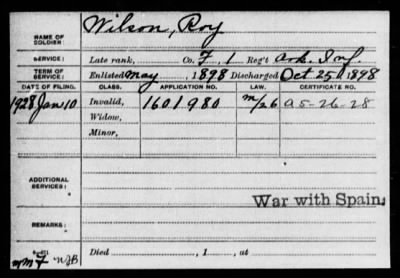 NAME OF SOLDIER: Wilson, Roy
SERVICE: Late rank, Co. F, 1 Reg't Ark. Inf.
TERM OF SERVICE: Enlisted May, 1898 Discharged Oct 25, 1898
DATE OF FILING. CLASS. APPLICATION NO. LAW. CERTIFICATE NO.
1928 Jan 10 Invalid, 1601980 M/26 A5-26-28
Widow,
Minor,
ADDITIONAL SERVICES:
War with Spain.
REMARKS:
Died , 1 , at